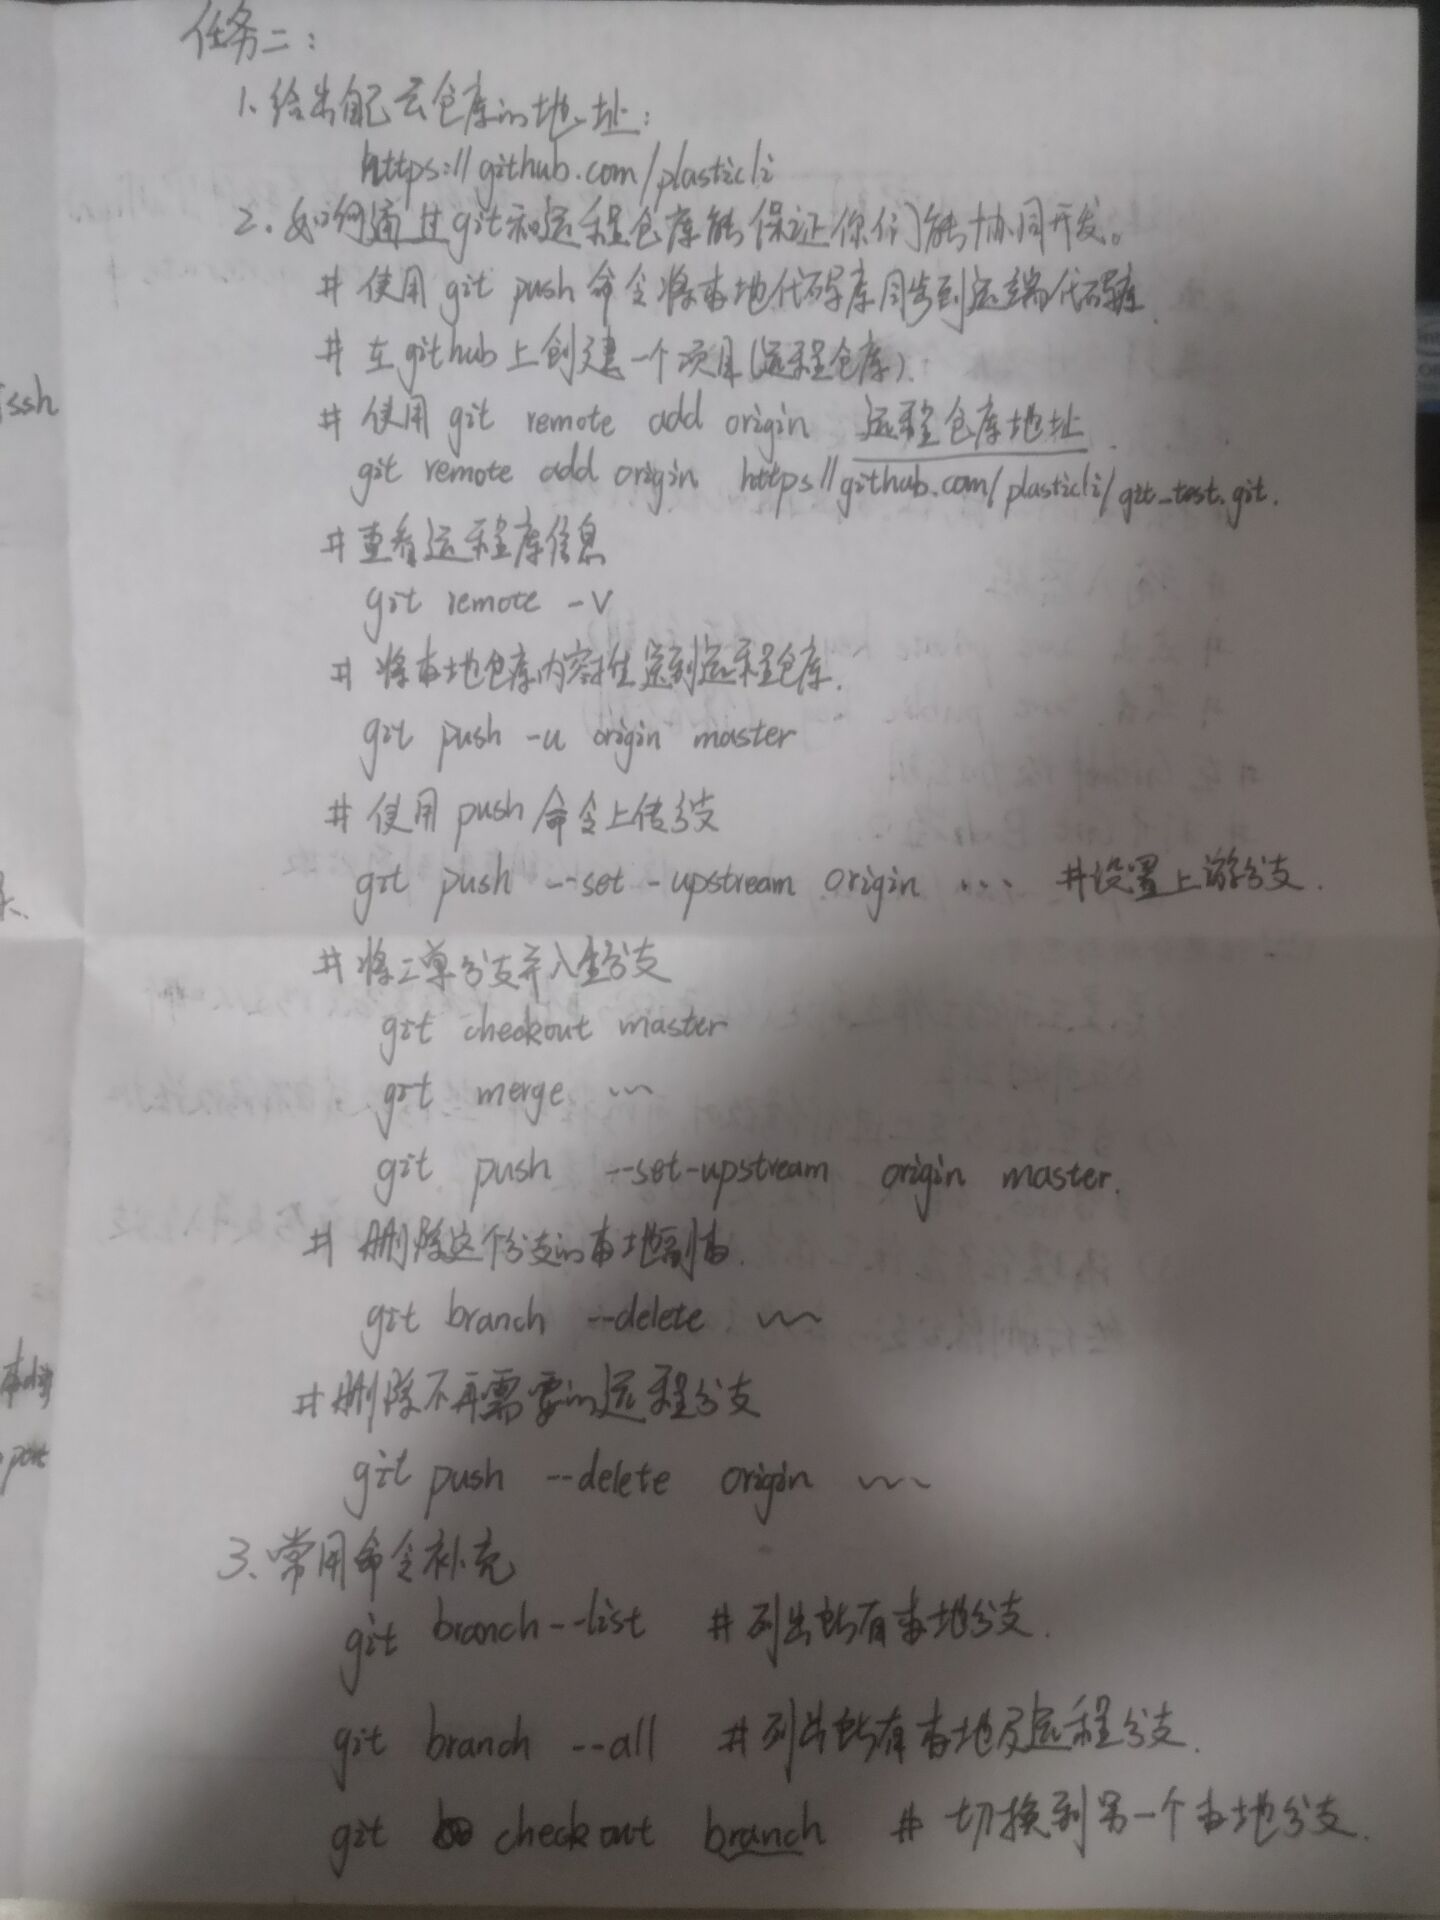 任务二:
1、给出自己云仓库的地址:
https://github.com/plasticli
2、如何通过git和远程仓库能保证你们能协同开发。
# 使用 git push 命令将本地代码库同步到远端代码库.
# 在github上创建一个项目(远程仓库).
# 使用 git remote add origin 远程仓库地址.
git remote add origin https//github.com/plasticli/git_test.git.
# 查看远程库信息
git remote -v
# 将本地仓库内容推送到远程仓库.
git push -u origin master
# 使用push命令上传分支
git push --set-upstream origin ... #设置上游分支.
# 将工单分支并入主分支
git checkout master
git merge ~~
git push --set-upstream origin master.
# 删除这个分支的本地副本.
git branch --delete ~~
# 删除不再需要的远程分支
git push --delete origin ~~
3、常用命令补充
git branch --list # 列出所有本地分支.
git branch --all # 列出所有本地及远程分支.
git checkout branch # 切换到另一个本地分支.
ssh